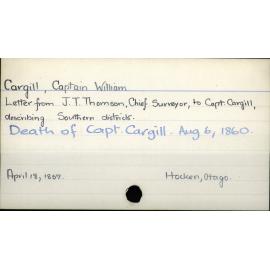 Cargill, Captain William
Letter from J.T. Thomson, Chief Surveyor, to Capt. Cargill,
describing Southern districts.
Death of Capt. Cargill. Aug 6, 1860.
April 18, 1857. Hocken, Otago.